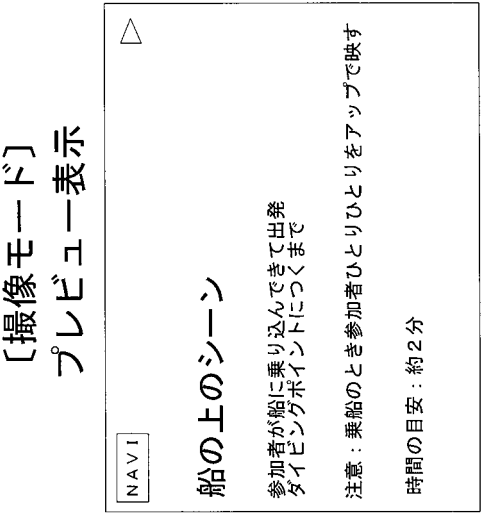 〔撮像モード〕
プレビュー表示
NAVI
船の上のシーン
参加者が船に乗り込んできて出発
ダイビングポイントにつくまで
注意：乗船のとき参加者ひとりひとりをアップで映す
時間の目安：約2分